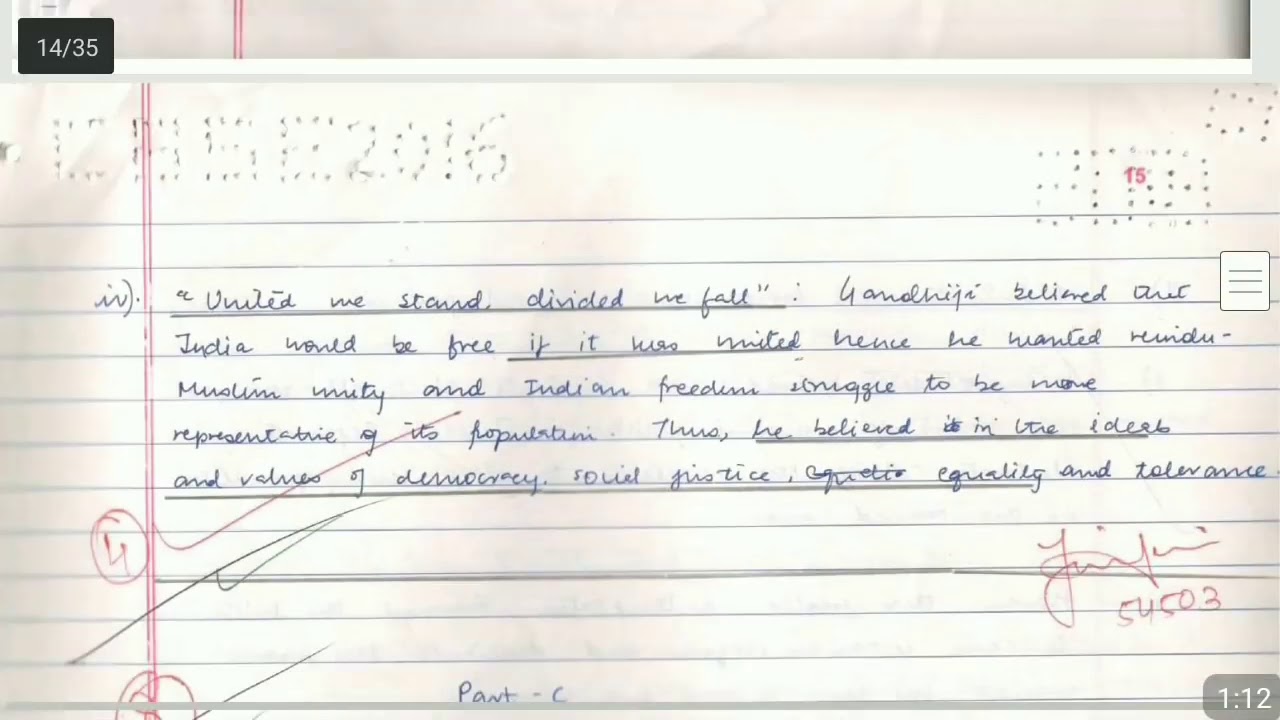 14/35
CBSE2016
15
iv). "United we stand, divided we fall": Gandhiji believed that
India would be free if it was united hence he wanted Hindu-
Muslim unity and Indian freedom struggle to be more
representative of its population. Thus, he believed in the ideals
and values of democracy, social justice, equality and tolerance
4
54503
Part - C
1:12